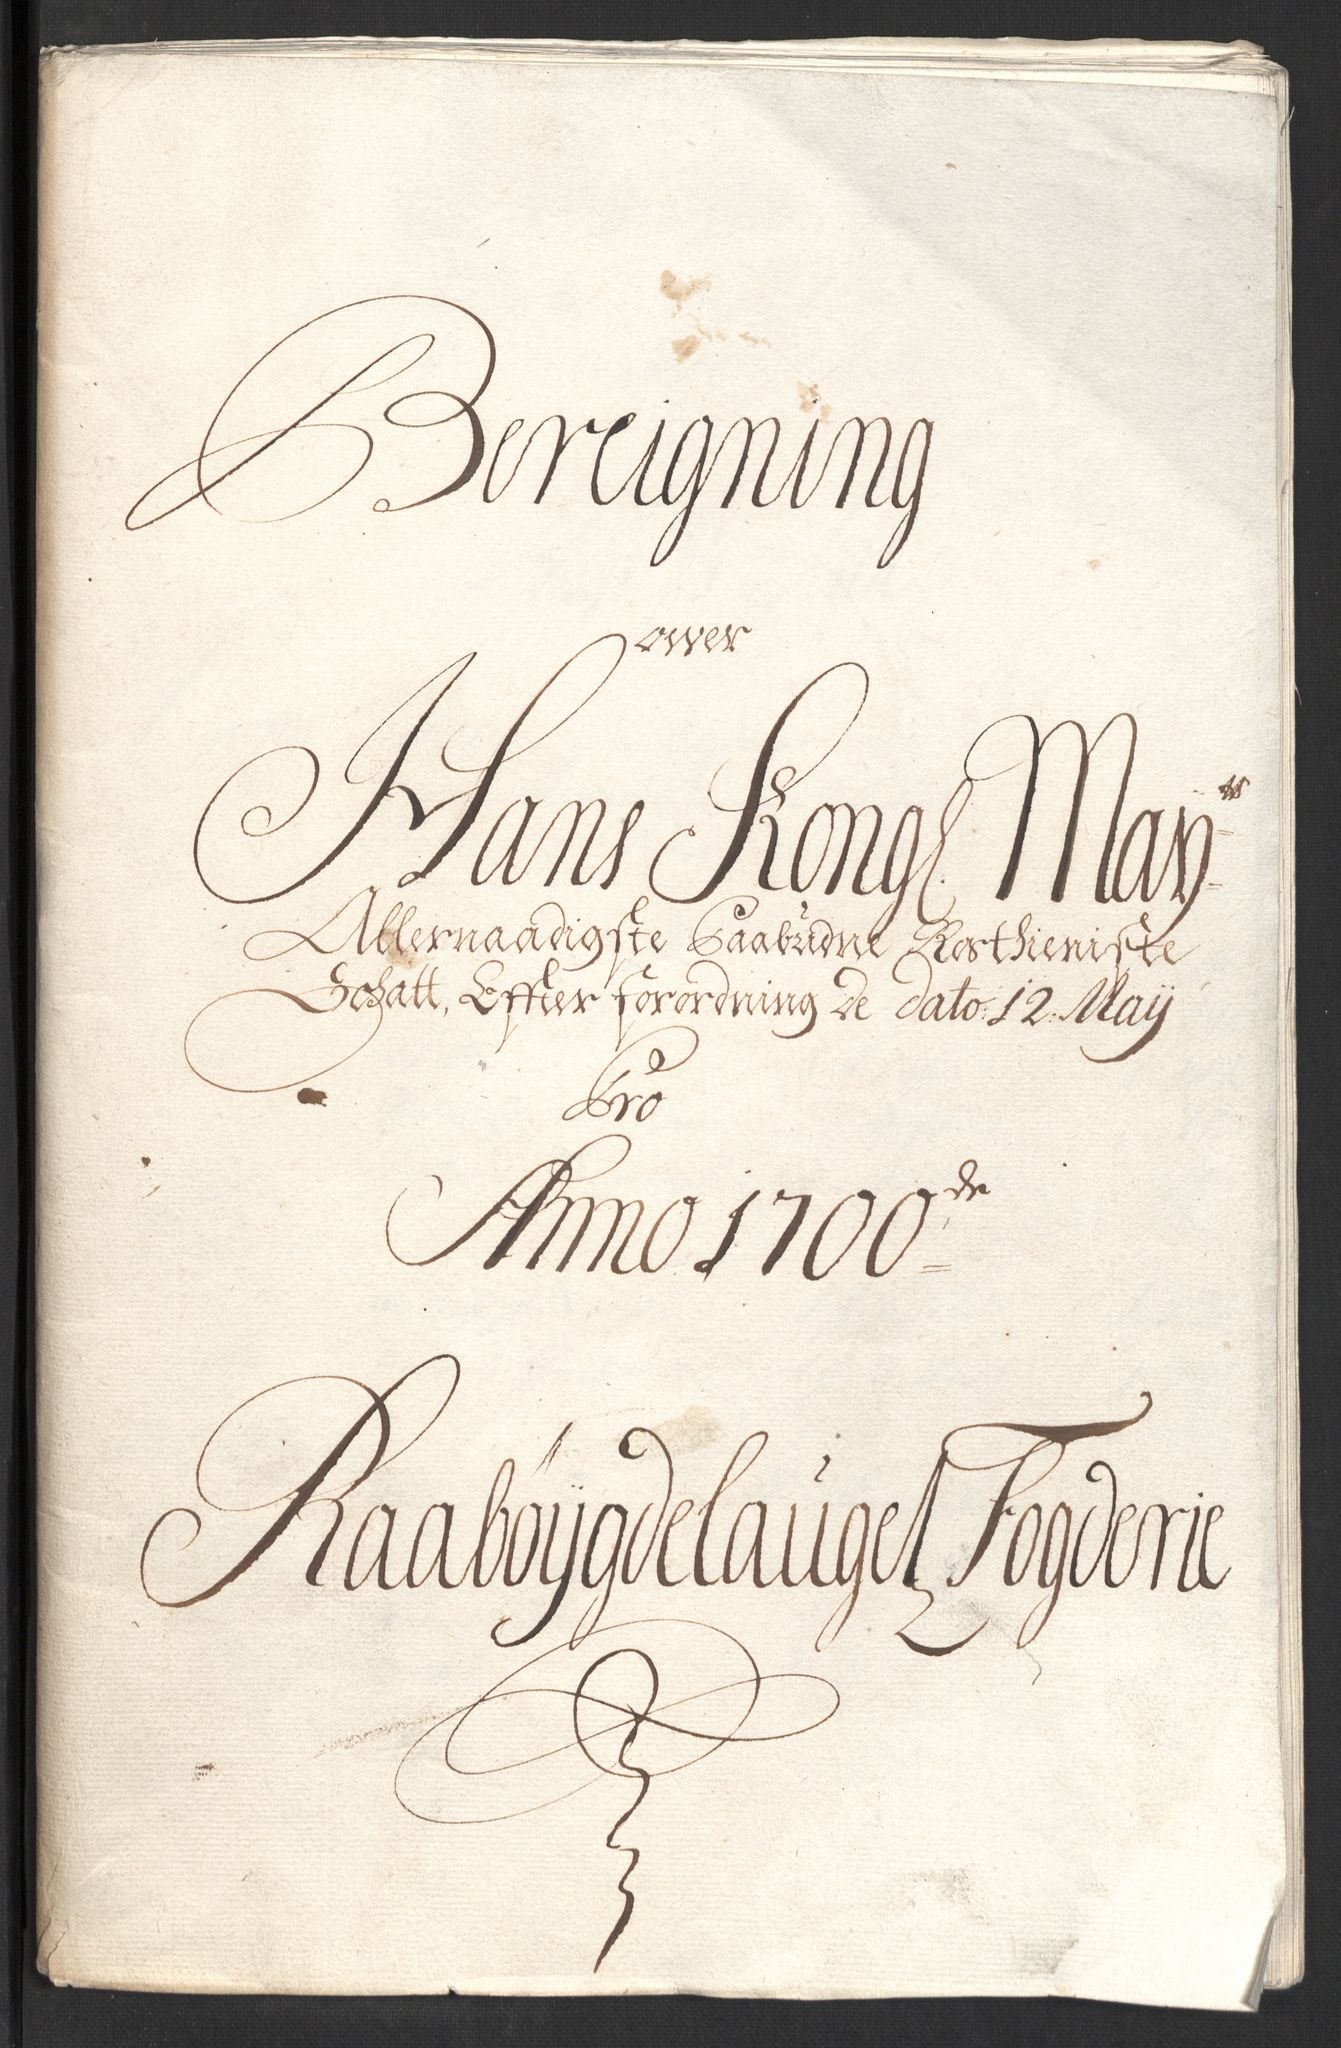 Bereigning
over
Hans Kongl Mayts
Allernaadigste Paabudne Rosthieniste
Schatt, Effter forordning de dato: 12. Maÿ
Pro
Anno 1700de
Raaböÿgdelauget Fogderie